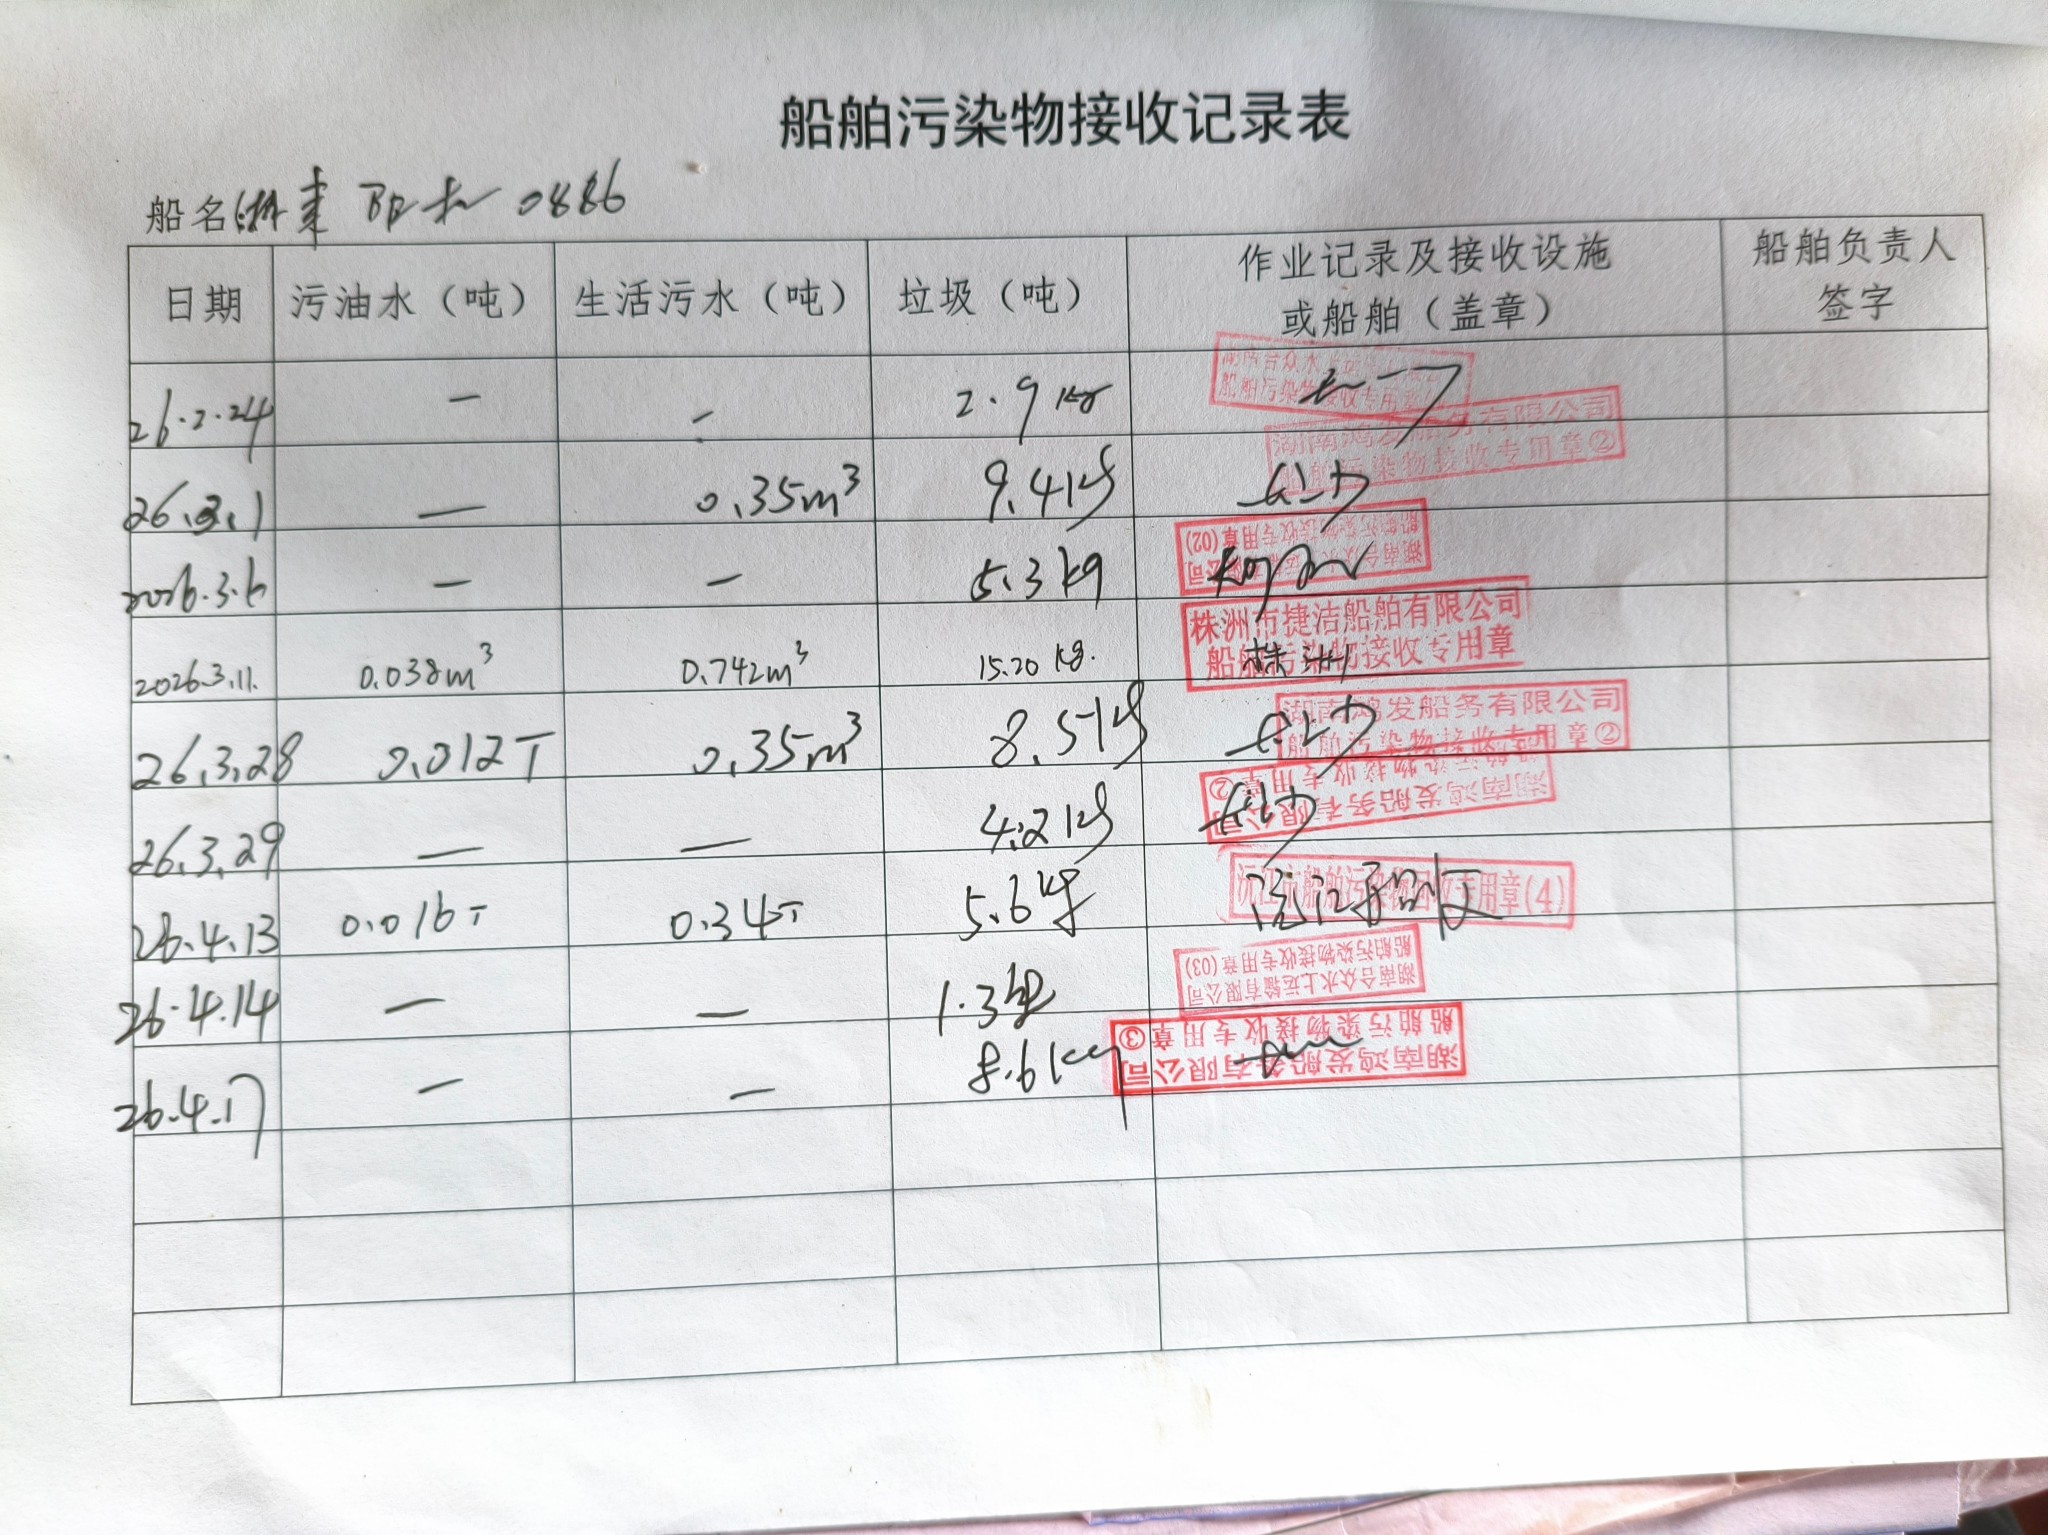 船舶污染物接收记录表
船名 0886
日期 污油水（吨） 生活污水（吨） 垃圾（吨） 作业记录及接收设施或船舶（盖章） 船舶负责人签字
26.2.24 — — 2.9 kg
湖南鸿发船务有限公司
船舶污染物接收专用章②
26.3.1 — 0.35m³ 9.4kg
2026.3.6 — — 5.3kg
船舶污染物接收专用章(02)
2026.3.11. 0.038m³ 0.742m³ 15.20 kg. 株洲
株洲市捷洁船舶有限公司
船舶污染物接收专用章
26.3.28 0.012T 0.35m³ 8.5kg
湖南鸿发船务有限公司
船舶污染物接收专用章②
26.3.29 — — 4.2kg
湖南鸿发船务有限公司
船舶污染物接收专用章②
26.4.13 0.016T 0.34T 5.6kg
26.4.14 — — 1.3kg
湖南合众水上运输有限公司
船舶污染物接收专用章(03)
26.4.17 — — 8.6kg
湖南鸿发船务有限公司
船舶污染物接收专用章③